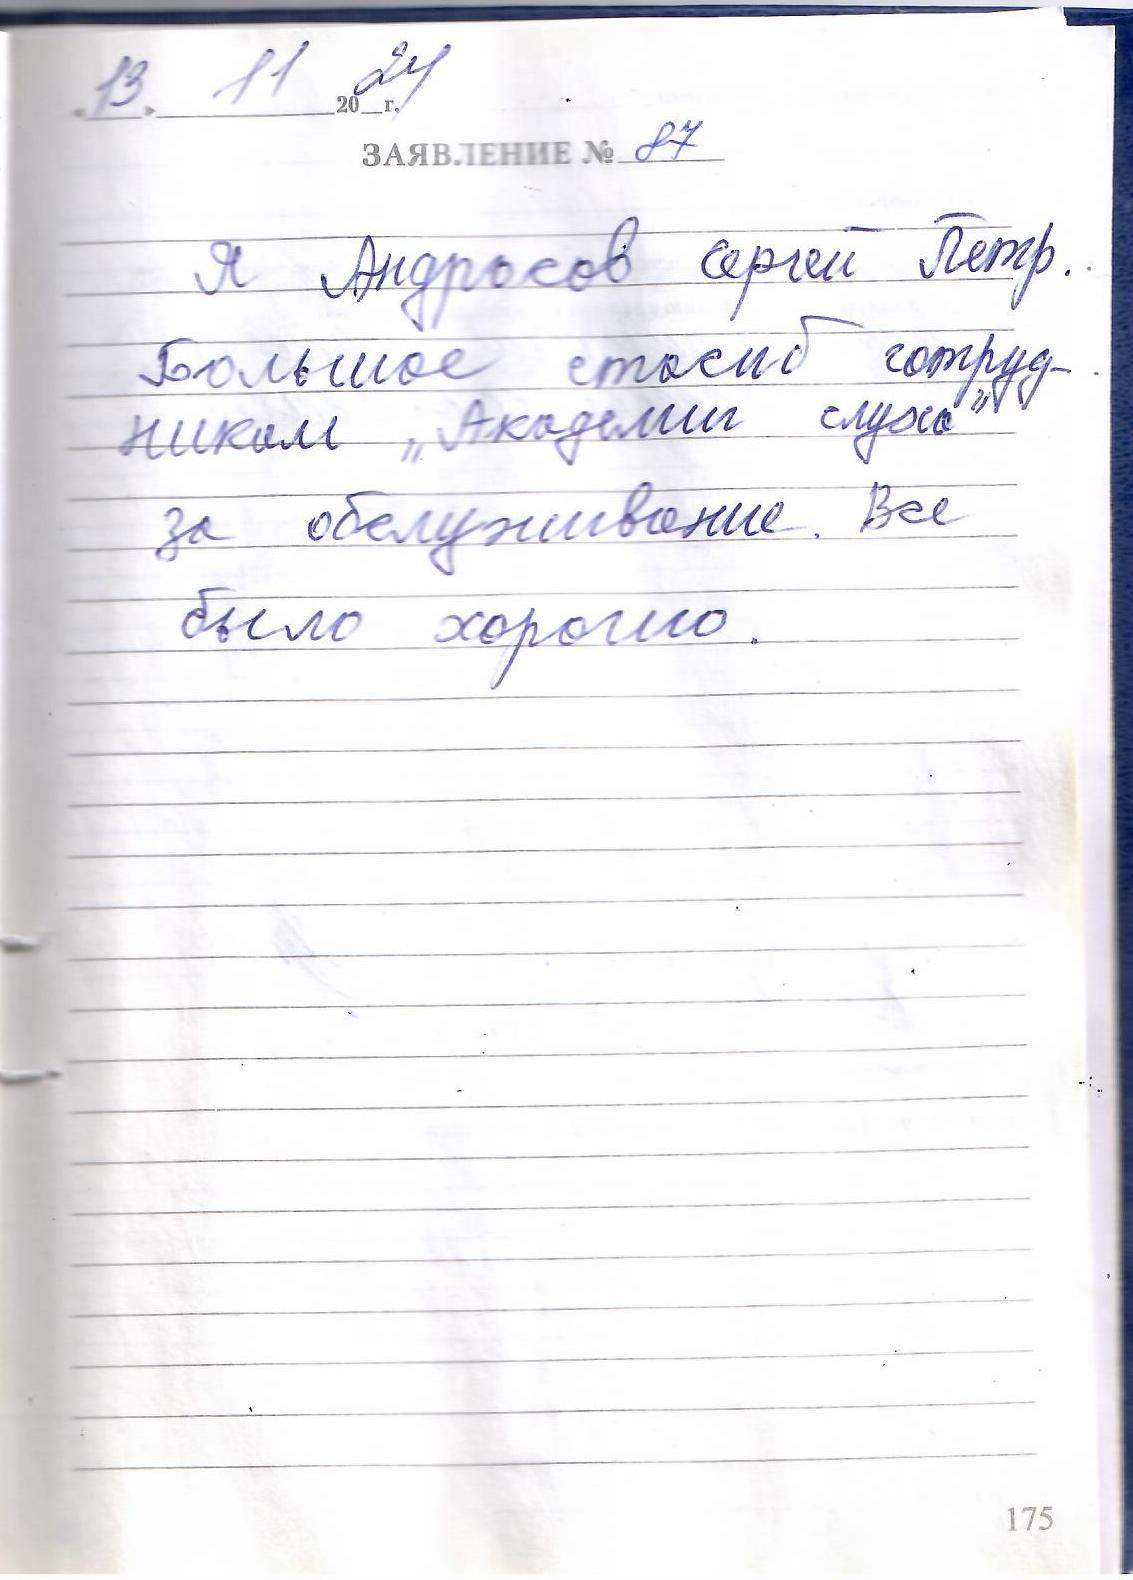 «13» 11 2024 г.
ЗАЯВЛЕНИЕ № 87
Я Андросов Сергей Петр.
Большое спасиб сотруд-
никам „Академии слуха"
за обслуживание. Все
было хорошо.
175